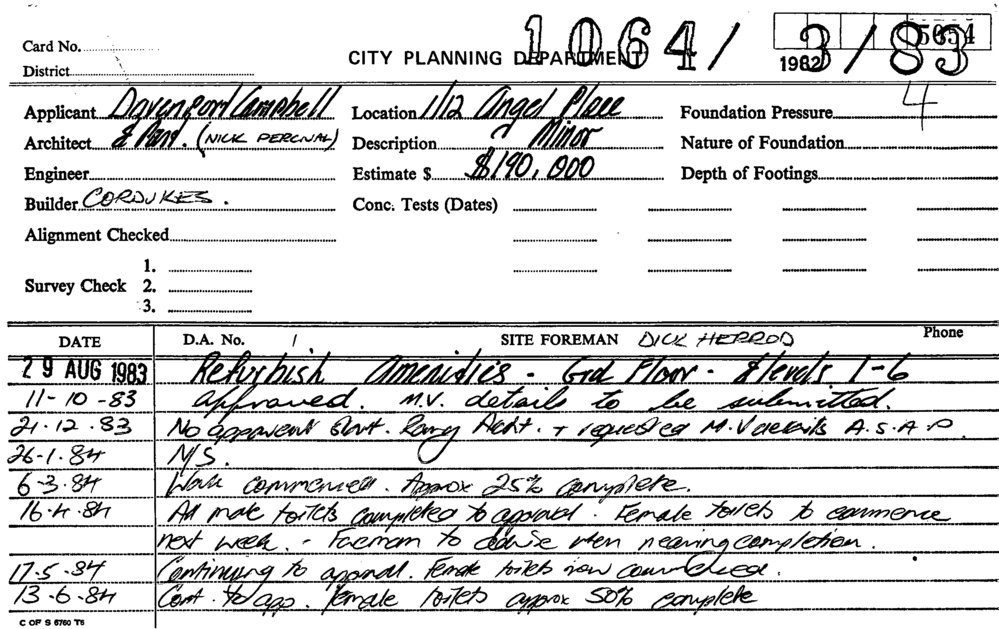 1064/ 3/83
5054
Card No.
CITY PLANNING DEPARTMENT
1982
District
4
Applicant Davenport Campbell Location 1/12 Angel Place Foundation Pressure
Architect & Part. (NICK PERCIVAL) Description Minor Nature of Foundation
Engineer Estimate $ $190,000 Depth of Footings
Builder CORDUKES. Conc. Tests (Dates)
Alignment Checked
1.
Survey Check 2.
3.
DATE D.A. No. 1 SITE FOREMAN DICK HERROD Phone
29 AUG 1983 Refurbish Amenities - Grd Floor - & levels 1-6
11-10-83 Approved. M.V. details to be submitted.
21.12.83 No apparent start. Rang Acht. + requested M.V details A.S.A.P
26-1.84 N/S.
6-3.84 Work commenced. Approx 25% complete.
16.4.84 All male toilets completed to approval. Female toilets to commence
next week. - Foreman to advise when nearing completion.
17-5.84 Continuing to approval. Female toilets now commenced.
13-6-84 Cont. to app. Female toilets approx 50% complete
C OF S 6760 T6